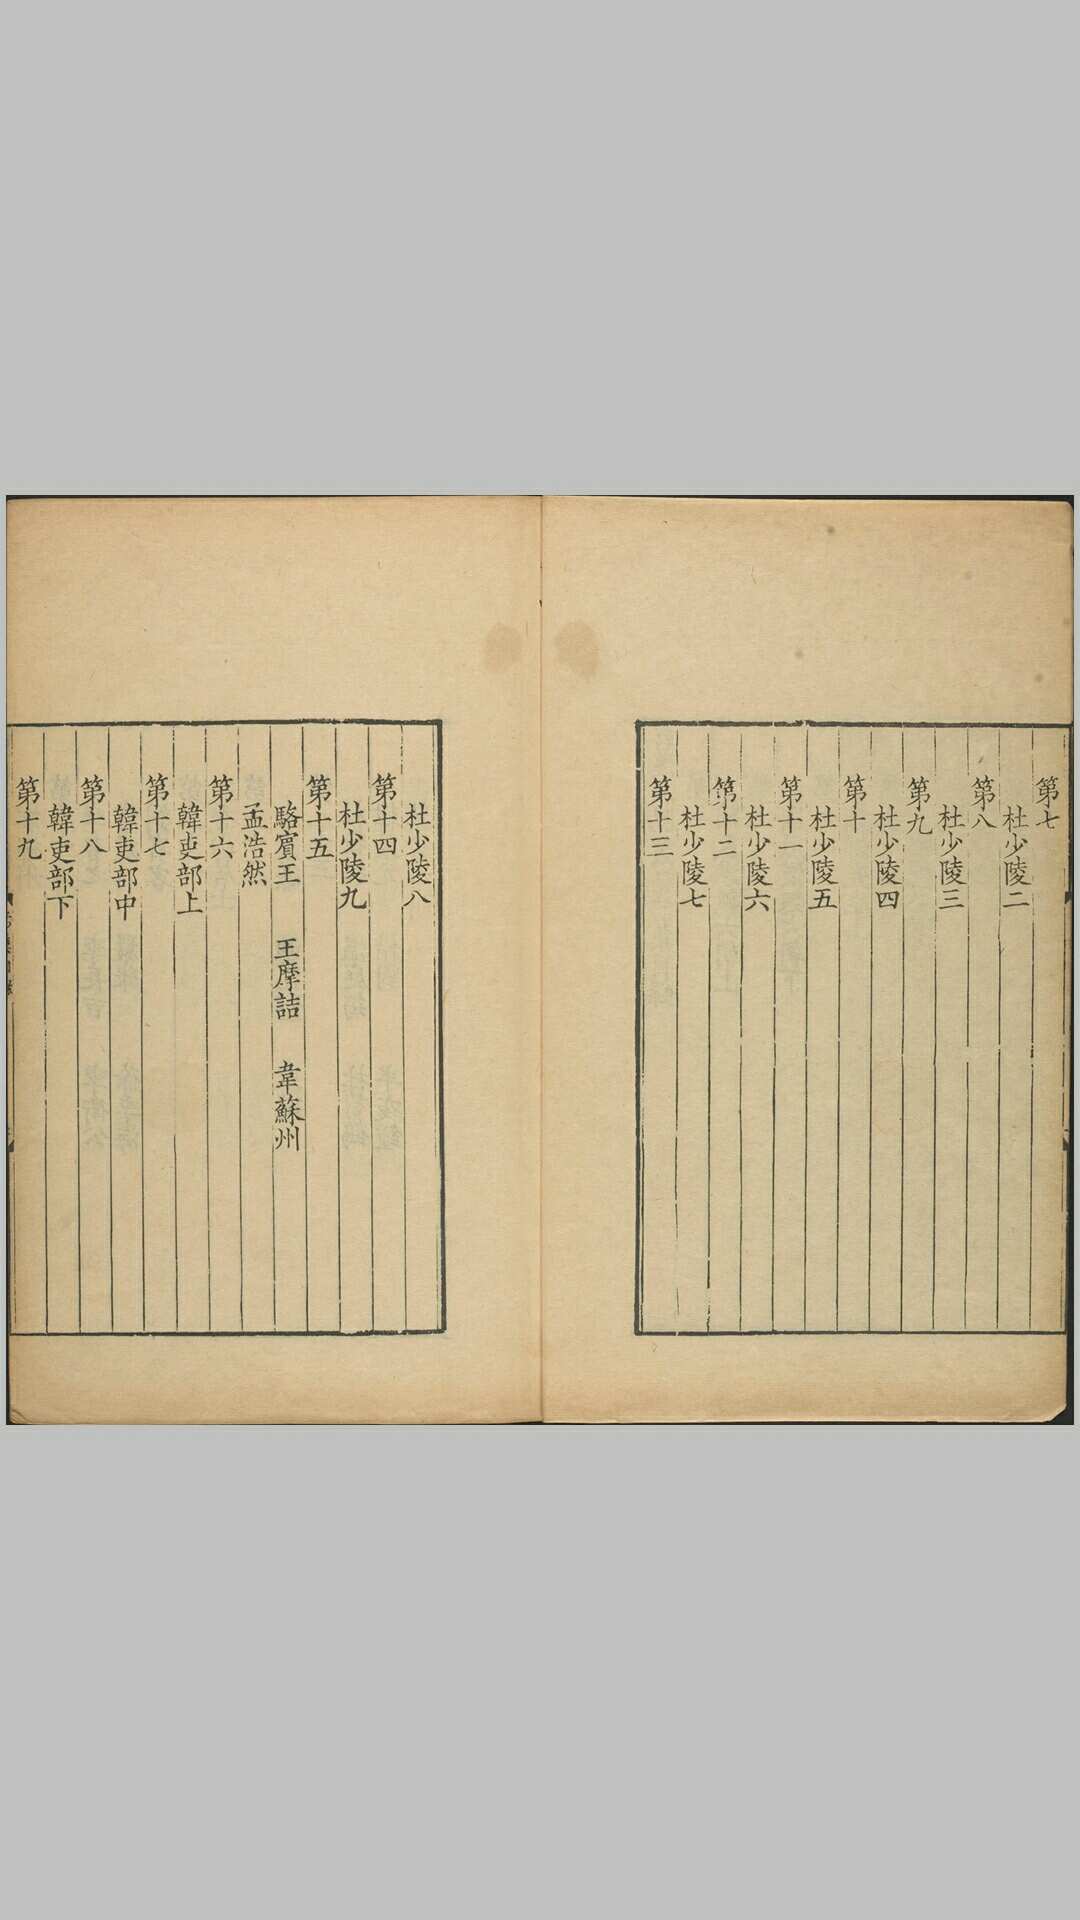 第七
杜少陵二
第八
杜少陵三
第九
杜少陵四
第十
杜少陵五
第十一
杜少陵六
第十二
杜少陵七
第十三
杜少陵八
第十四
杜少陵九
第十五
駱賓王 王摩詰 韋蘇州
孟浩然
第十六
韓吏部上
第十七
韓吏部中
第十八
韓吏部下
第十九